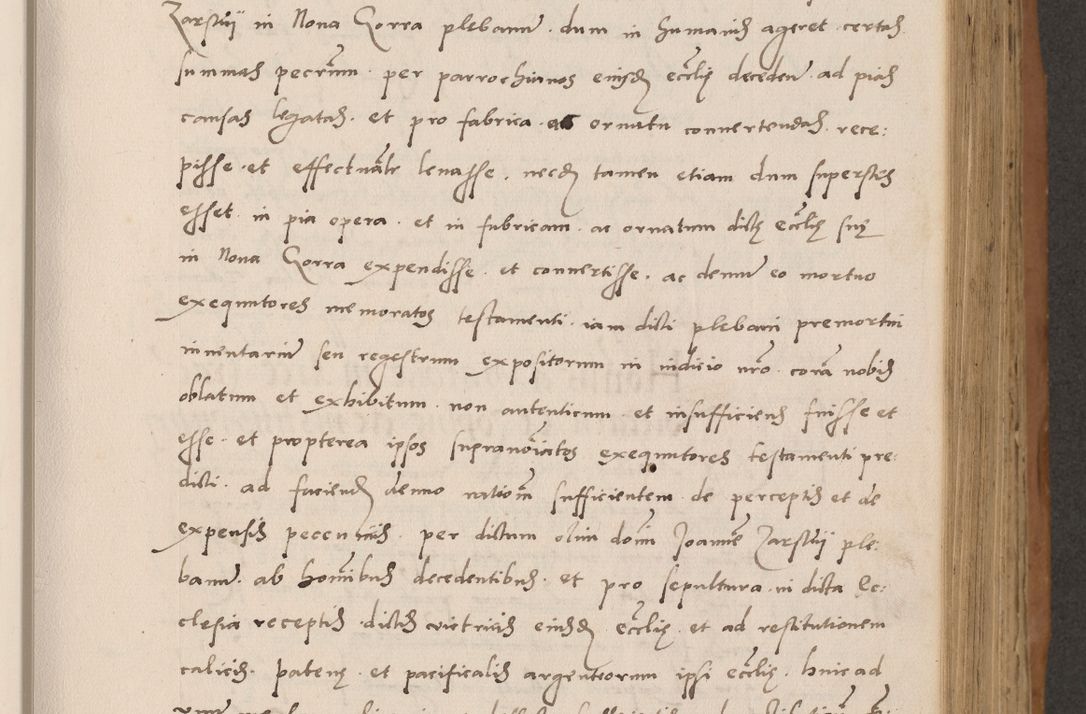 Zarskij in Nova Gorra plebanum · dum in humanis ageret · certas
summas pecuniarum · per parrochianos eiusdem ecclesie decedentes · ad pias
causas legatas · et pro fabrica · ac ornatu convertendas · rece:
pisse · et effectualiter levasse · necdum tamen etiam dum superstes
esset · in pia opera · et in fabricam · ac ornatum dicte ecclesie sue
in Nova Gorra expendisse · et convertisse · ac demum eo mortuo
exequutores memoratos testamenti · iam dicti plebani premortui
inventarium seu regestrum expositorum in iudicio nostro · coram nobis
oblatum et exhibitum · non autenticum · et insufficiens fuisse et
esse · et propterea ipsos supranominatos exequutores testamenti pre:
dicti · ad faciendam denuo rationem sufficientem · de perceptis et de
expensis pecuniis · per dictum olim dominum Joannem Zarskij ple:
banum · ab hominibus decedentibus · et pro sepultura · in dicta Ec:
clesia receptis · dictis vietricis eiusdem ecclesie · et ad restitutionem
calicis · patene · et pacificalis argenteorum ipsi ecclesie · huic ad